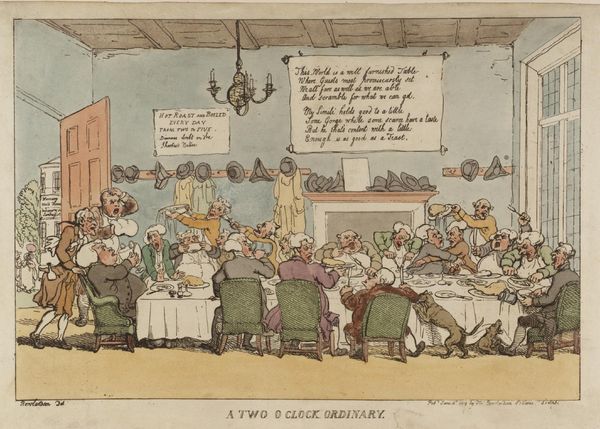 This World is a well furnished Table
Where Guests most promiscuously sit
We all fare as well as we are able
And Scramble for what we can get.
My Simile holds good to a tittle
Some Gorge while some scarce have a taste
But he that's content with a little
Enough is as good as a Feast.
HOT ROAST AND BOILED
EVERY DAY
FROM TWO TO FIVE.
Dinners drest on the
Shortest Notice
Rowlandson Del
A TWO O CLOCK ORDINARY.